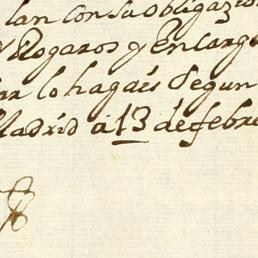 lan con su obligazio
Rogaros y Encarg
lo hagáis Segun
Madrid á 13 de febre